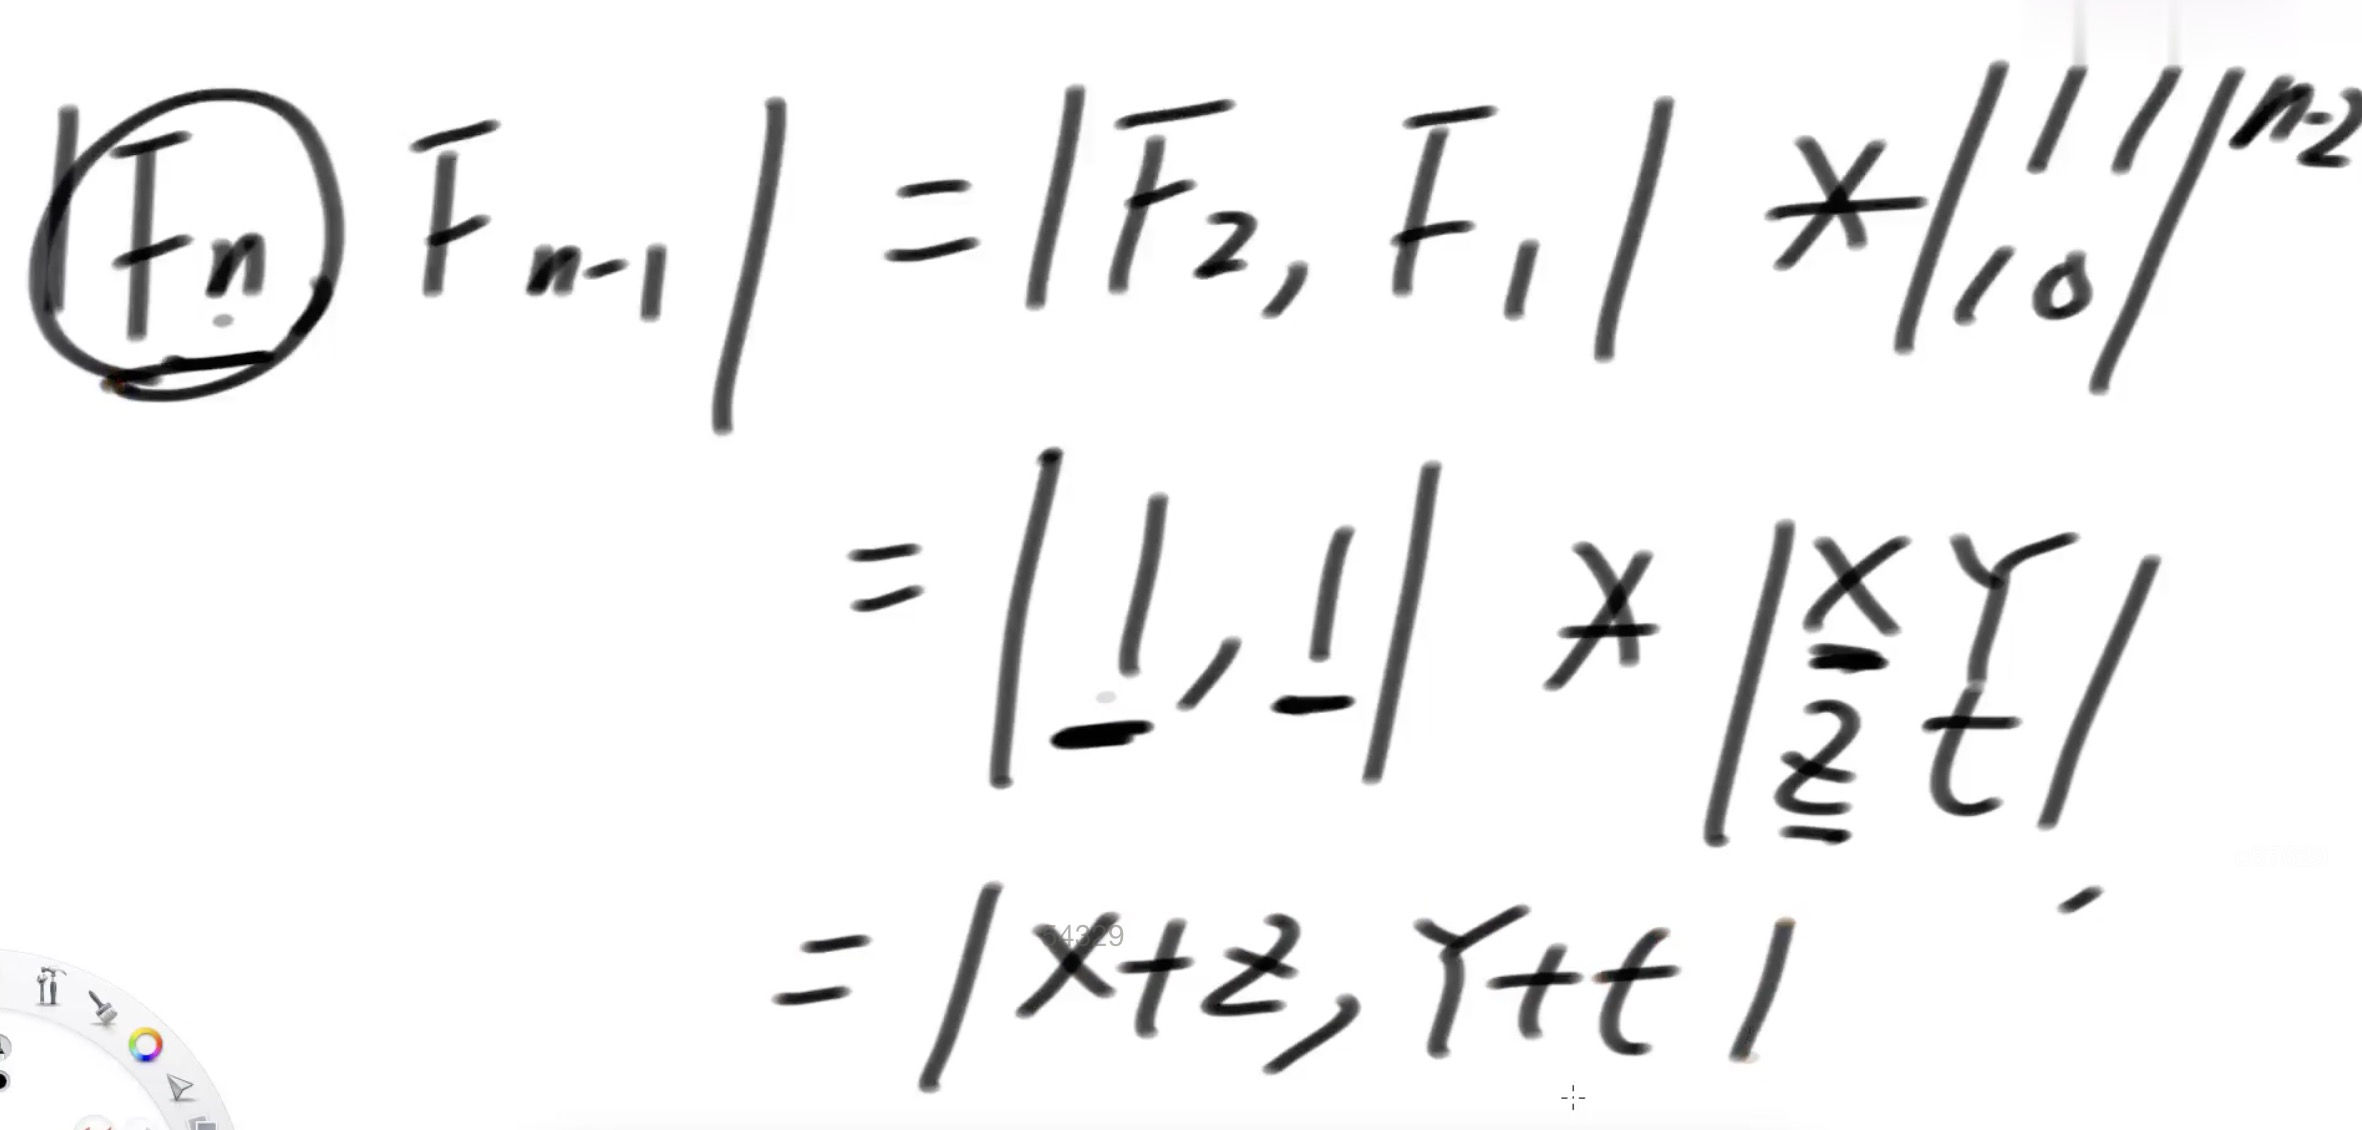 |Fn Fn-1| = |F2, F1| * |1 1 / 1 0|^n-2
= |1, 1| * |x Y / z t|
= |x+z, Y+t|
54329